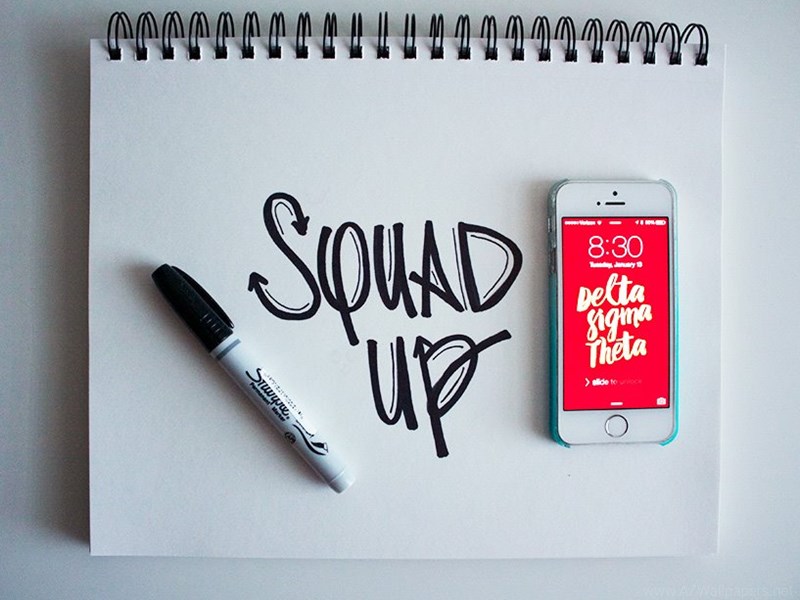 SQUAD
UP
8:30
Tuesday, January 13
Delta
Sigma
Theta
slide to unlock
PERMANENT MARKER